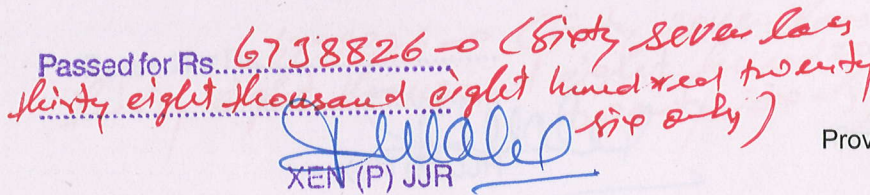 Passed for Rs. 6738826-0 (Sixty seven lacs
thirty eight thousand eight hundred twenty
six only)
Prov
XEN (P) JJR